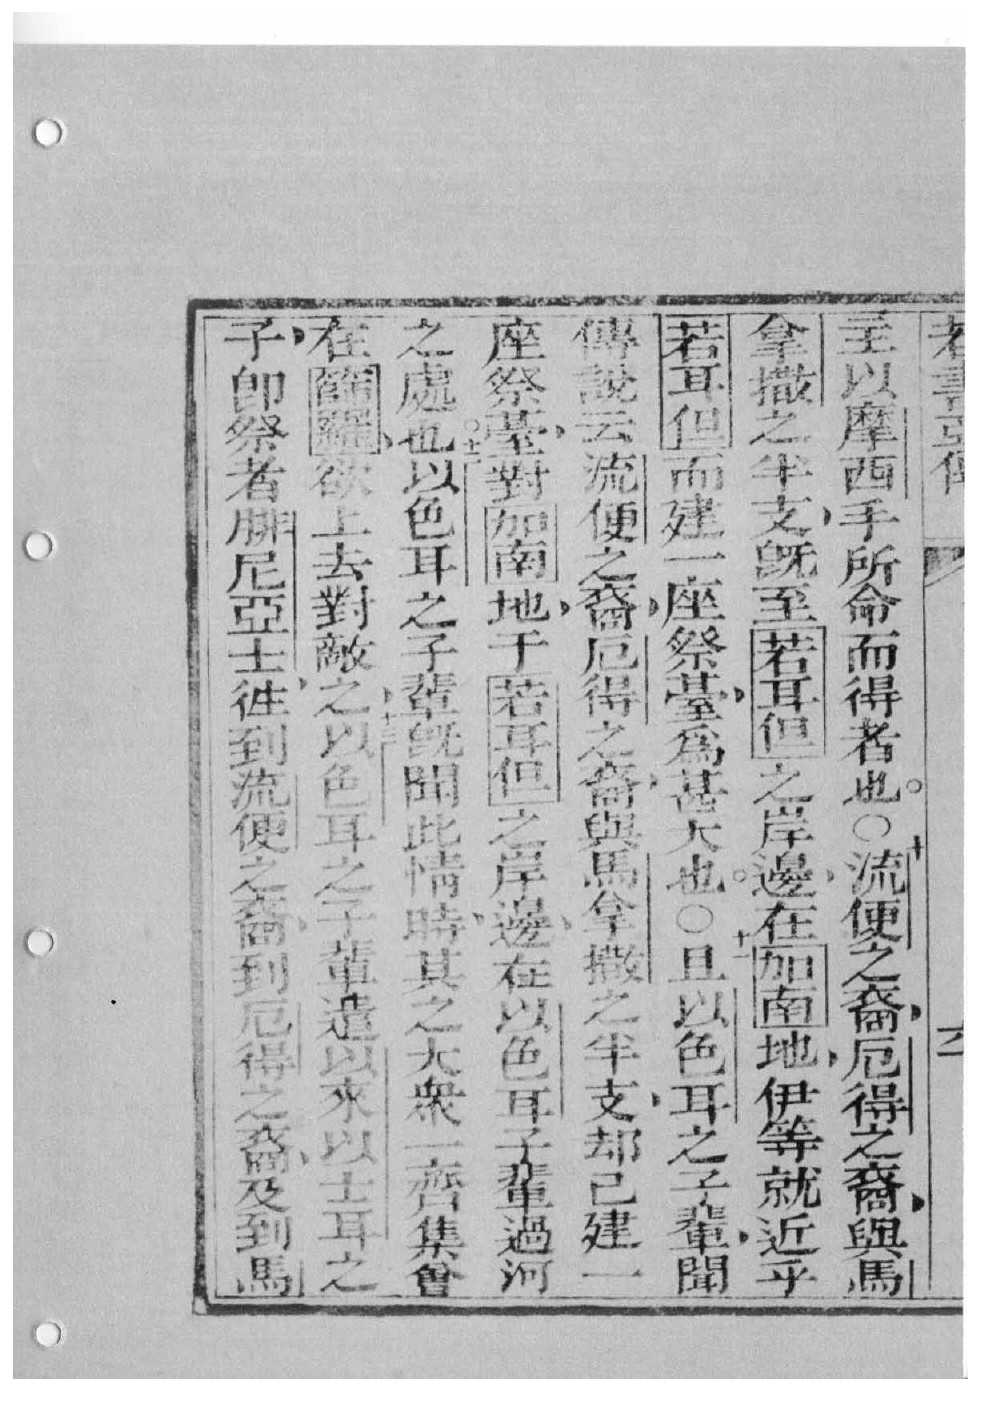 若書亞傳 六
主以摩西手所命而得者也。○十流便之裔厄得之裔與馬
拿撒之半支既至若耳但之岸邊在加南地伊等就近乎
若耳但而建一座祭臺爲甚大也。○十一且以色耳之子輩聞
傳說云流便之裔厄得之裔與馬拿撒之半支却已建一
座祭臺對加南地于若耳但之岸邊在以色耳子輩過河
之處也。十二以色耳之子輩既聞此情時其之大衆一齊集會
在篩羅欲上去對敵之十三以色耳之子輩遣以來以士耳之
子卽祭者腓尼亞士徃到流便之裔到厄得之裔及到馬